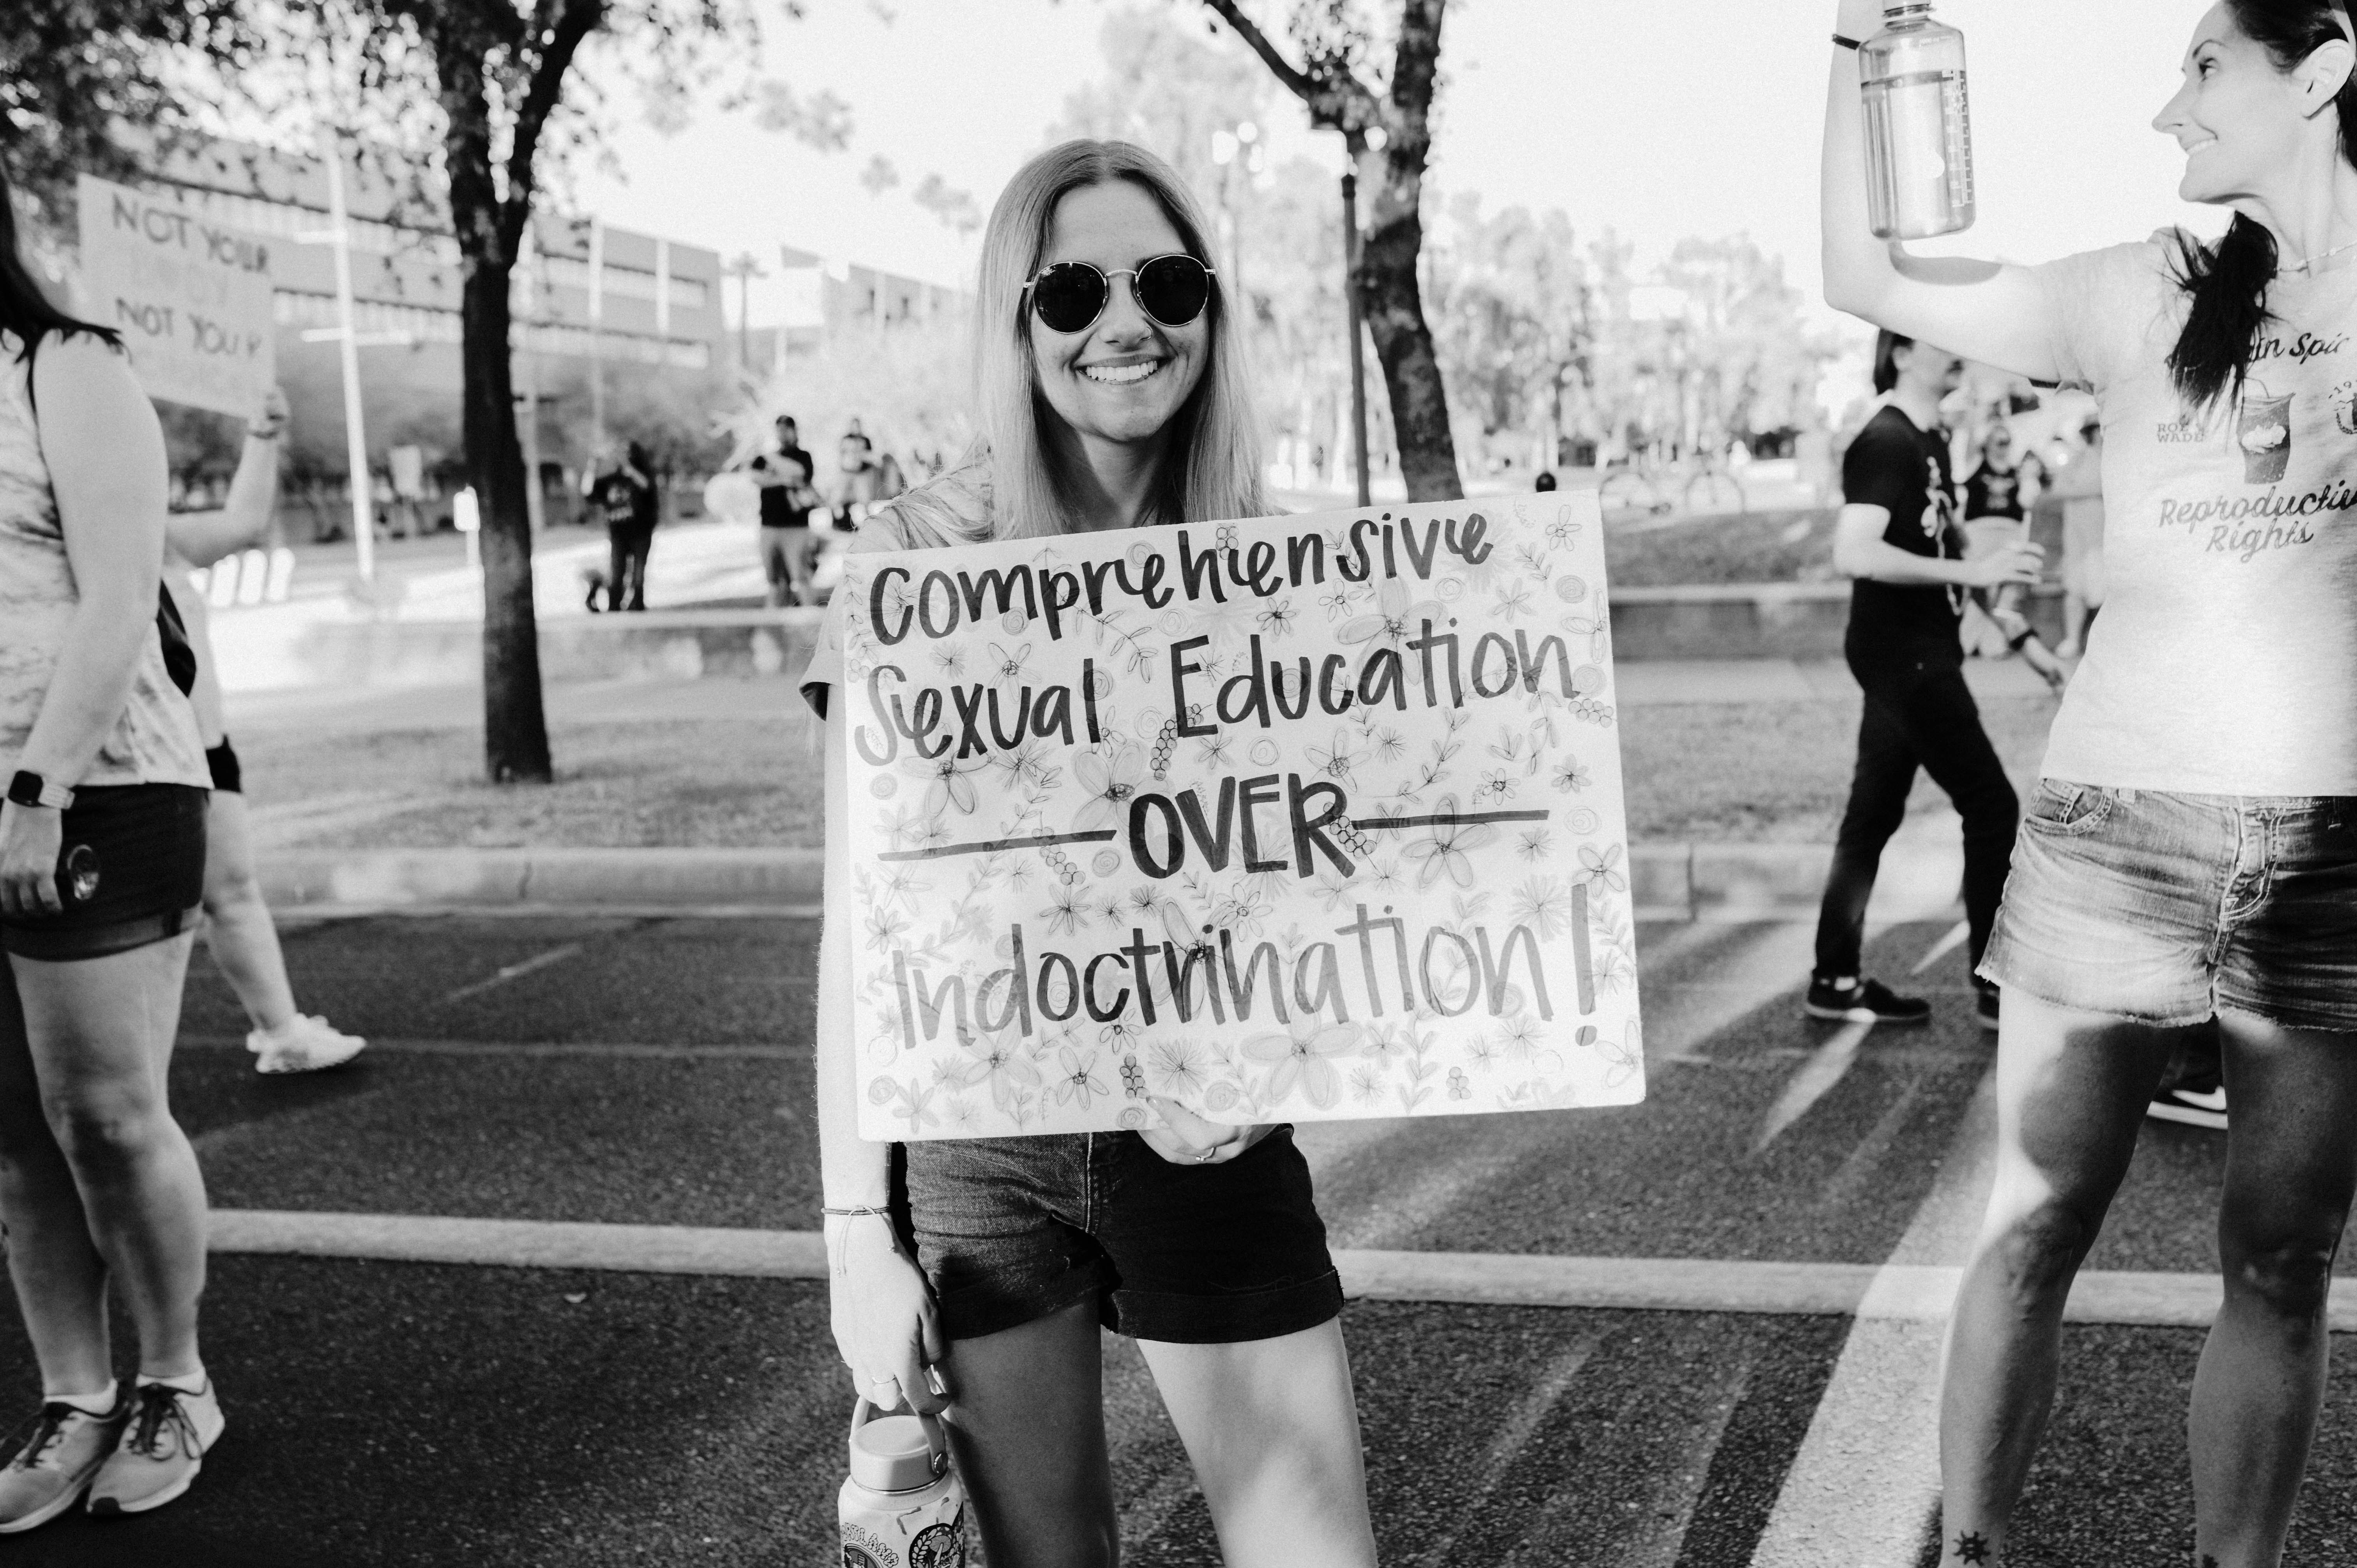 NOT YOUR
NOT YOUR
Comprehensive
Sexual Education
OVER
Indoctrination!
ROE V
WADE
Reproductive
Rights